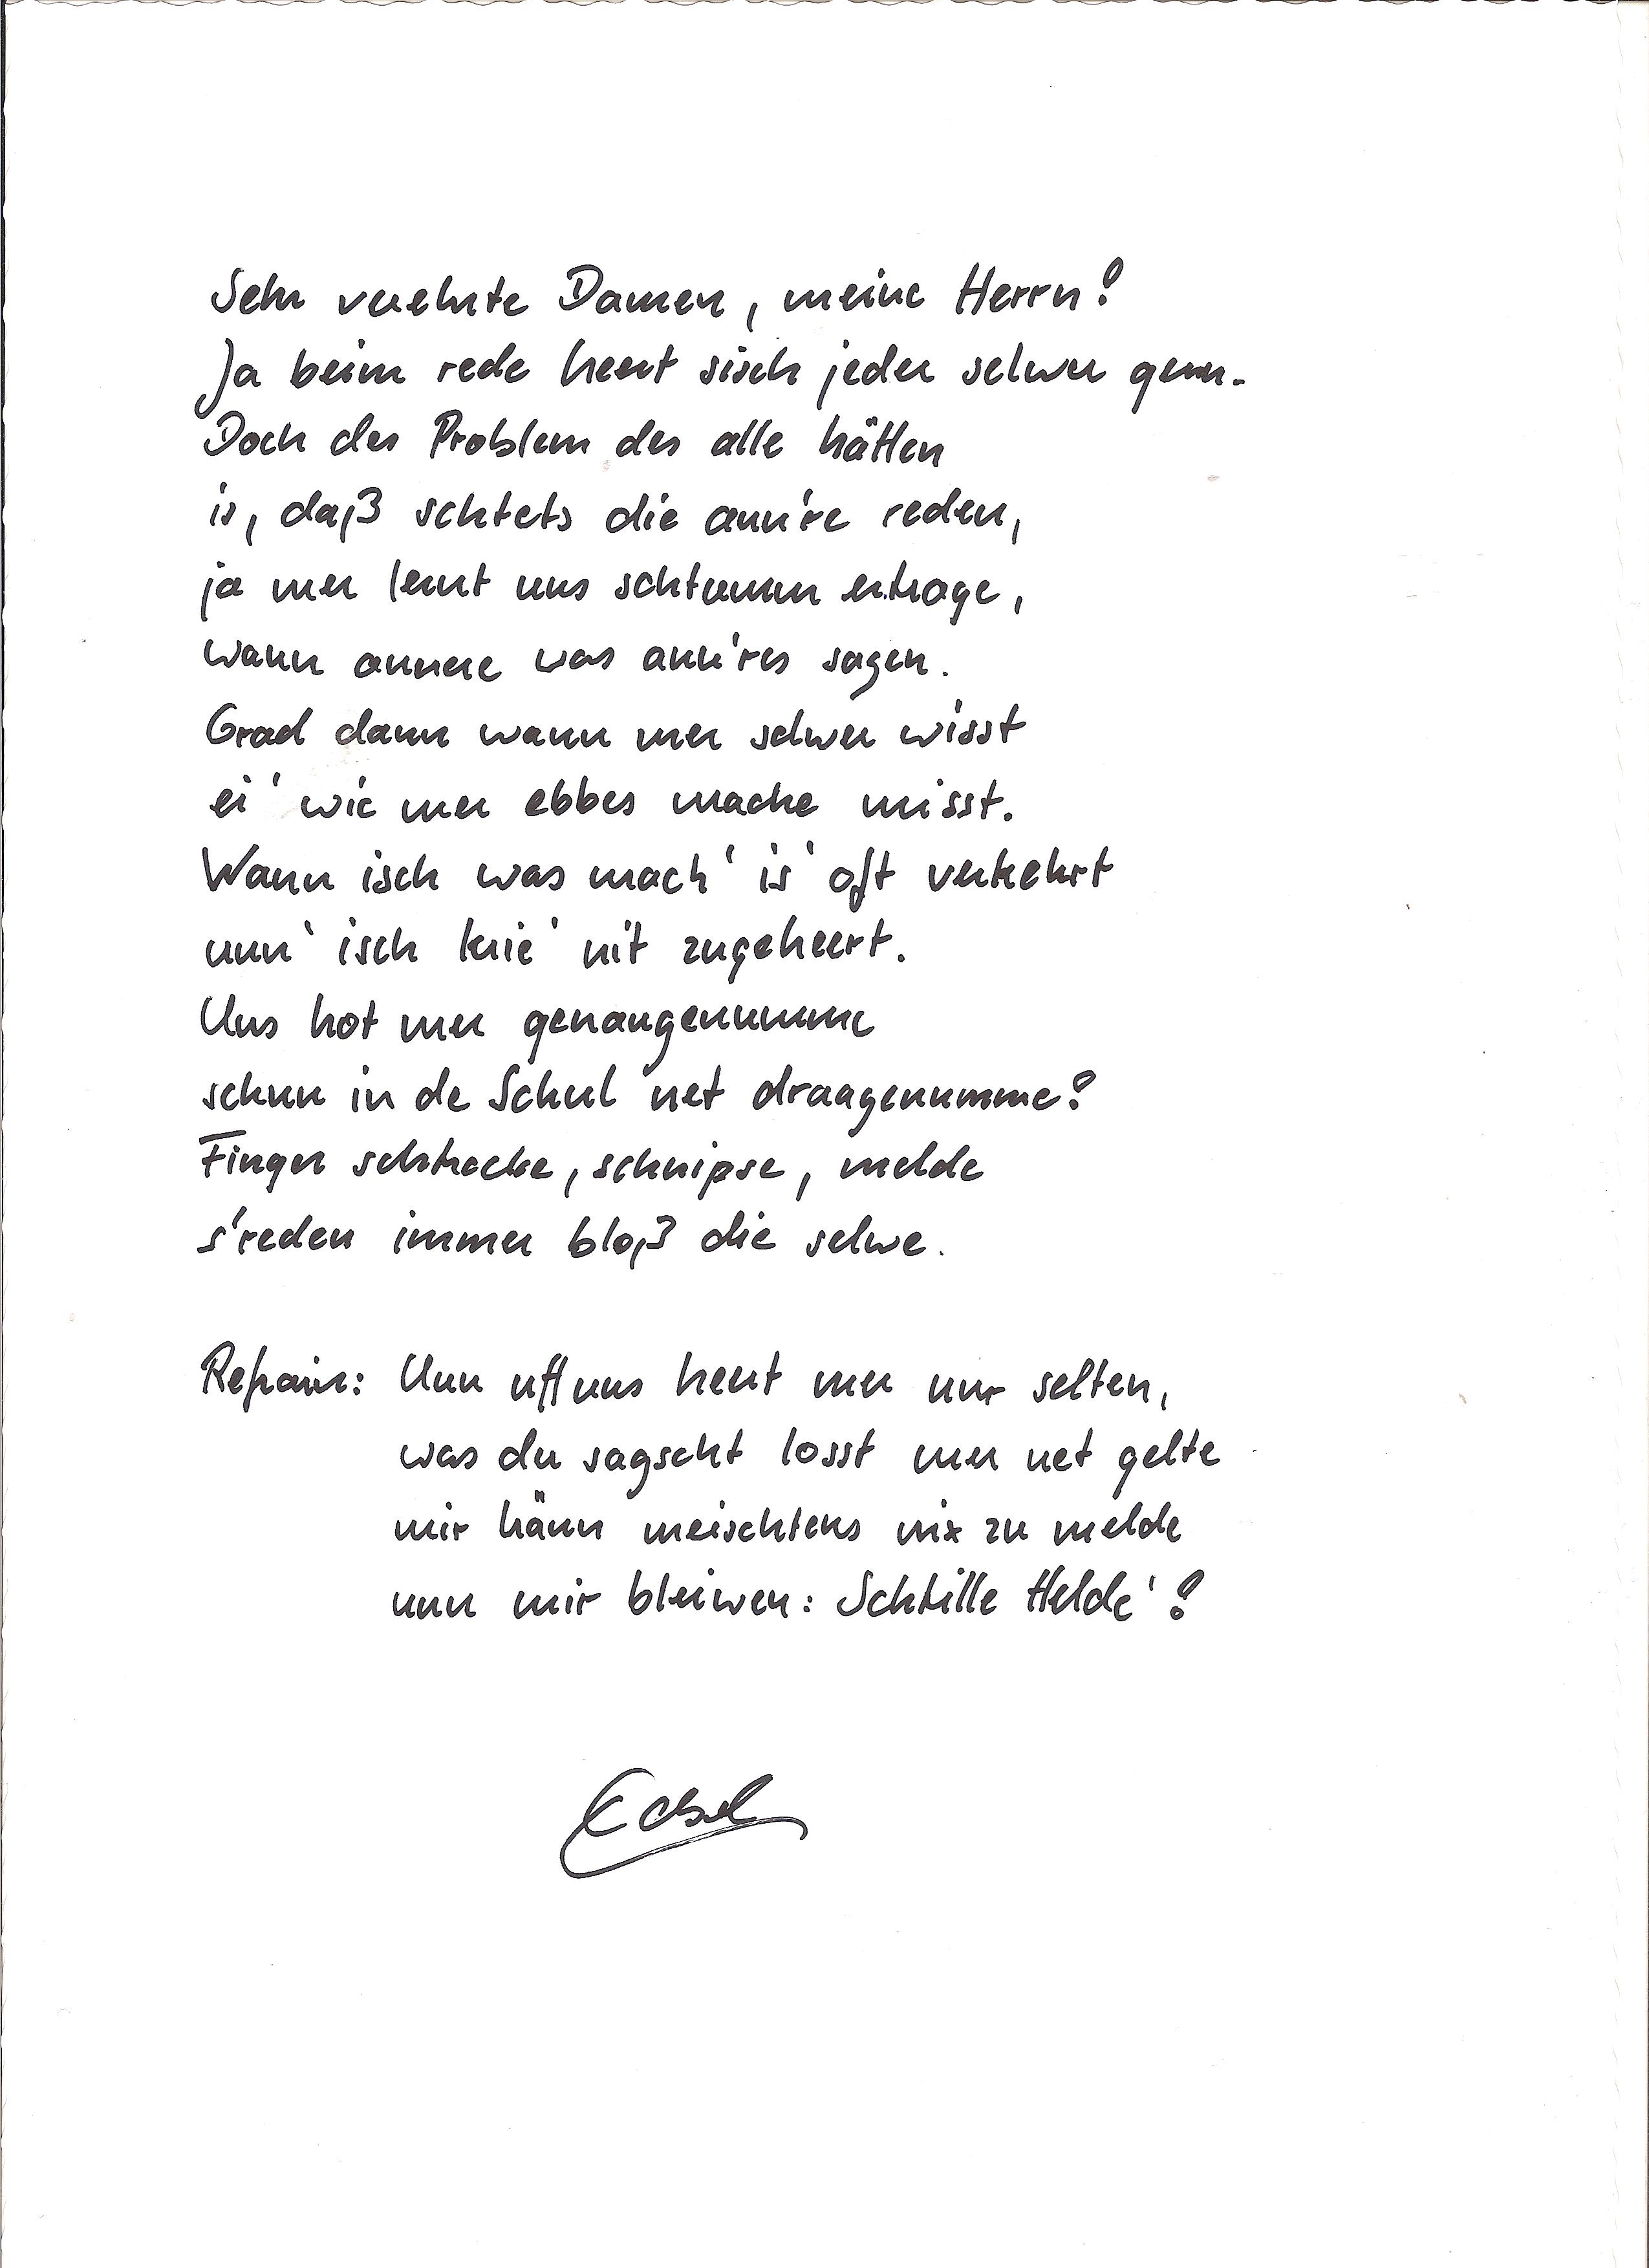 Sehr verehrte Damen, meine Herrn!
Ja beim rede heert sisch jeder selwer gern.
Doch des Problem des alle hätten
is, daß schtets die ann're reden,
ja mer lernt uns schtumm ertrage,
wann annere was ann'res sagen.
Grad dann wann mer selwer wisst
ei' wie mer ebbes mache misst.
Wann isch was mach' is' oft verkehrt
unn' isch krie' nit zugeheert.
Uns hot mer genaugenumme
schun in de Schul net draagenumme!
Finger schtrecke, schnipse, melde
s'reden immer bloß die selwe.
Refrain: Unn uff uns heert mer nur selten,
was du sagscht losst mer net gelte
mir hänn meischtens nix zu melde
unn mir bleiwen: Schtille Helde'!